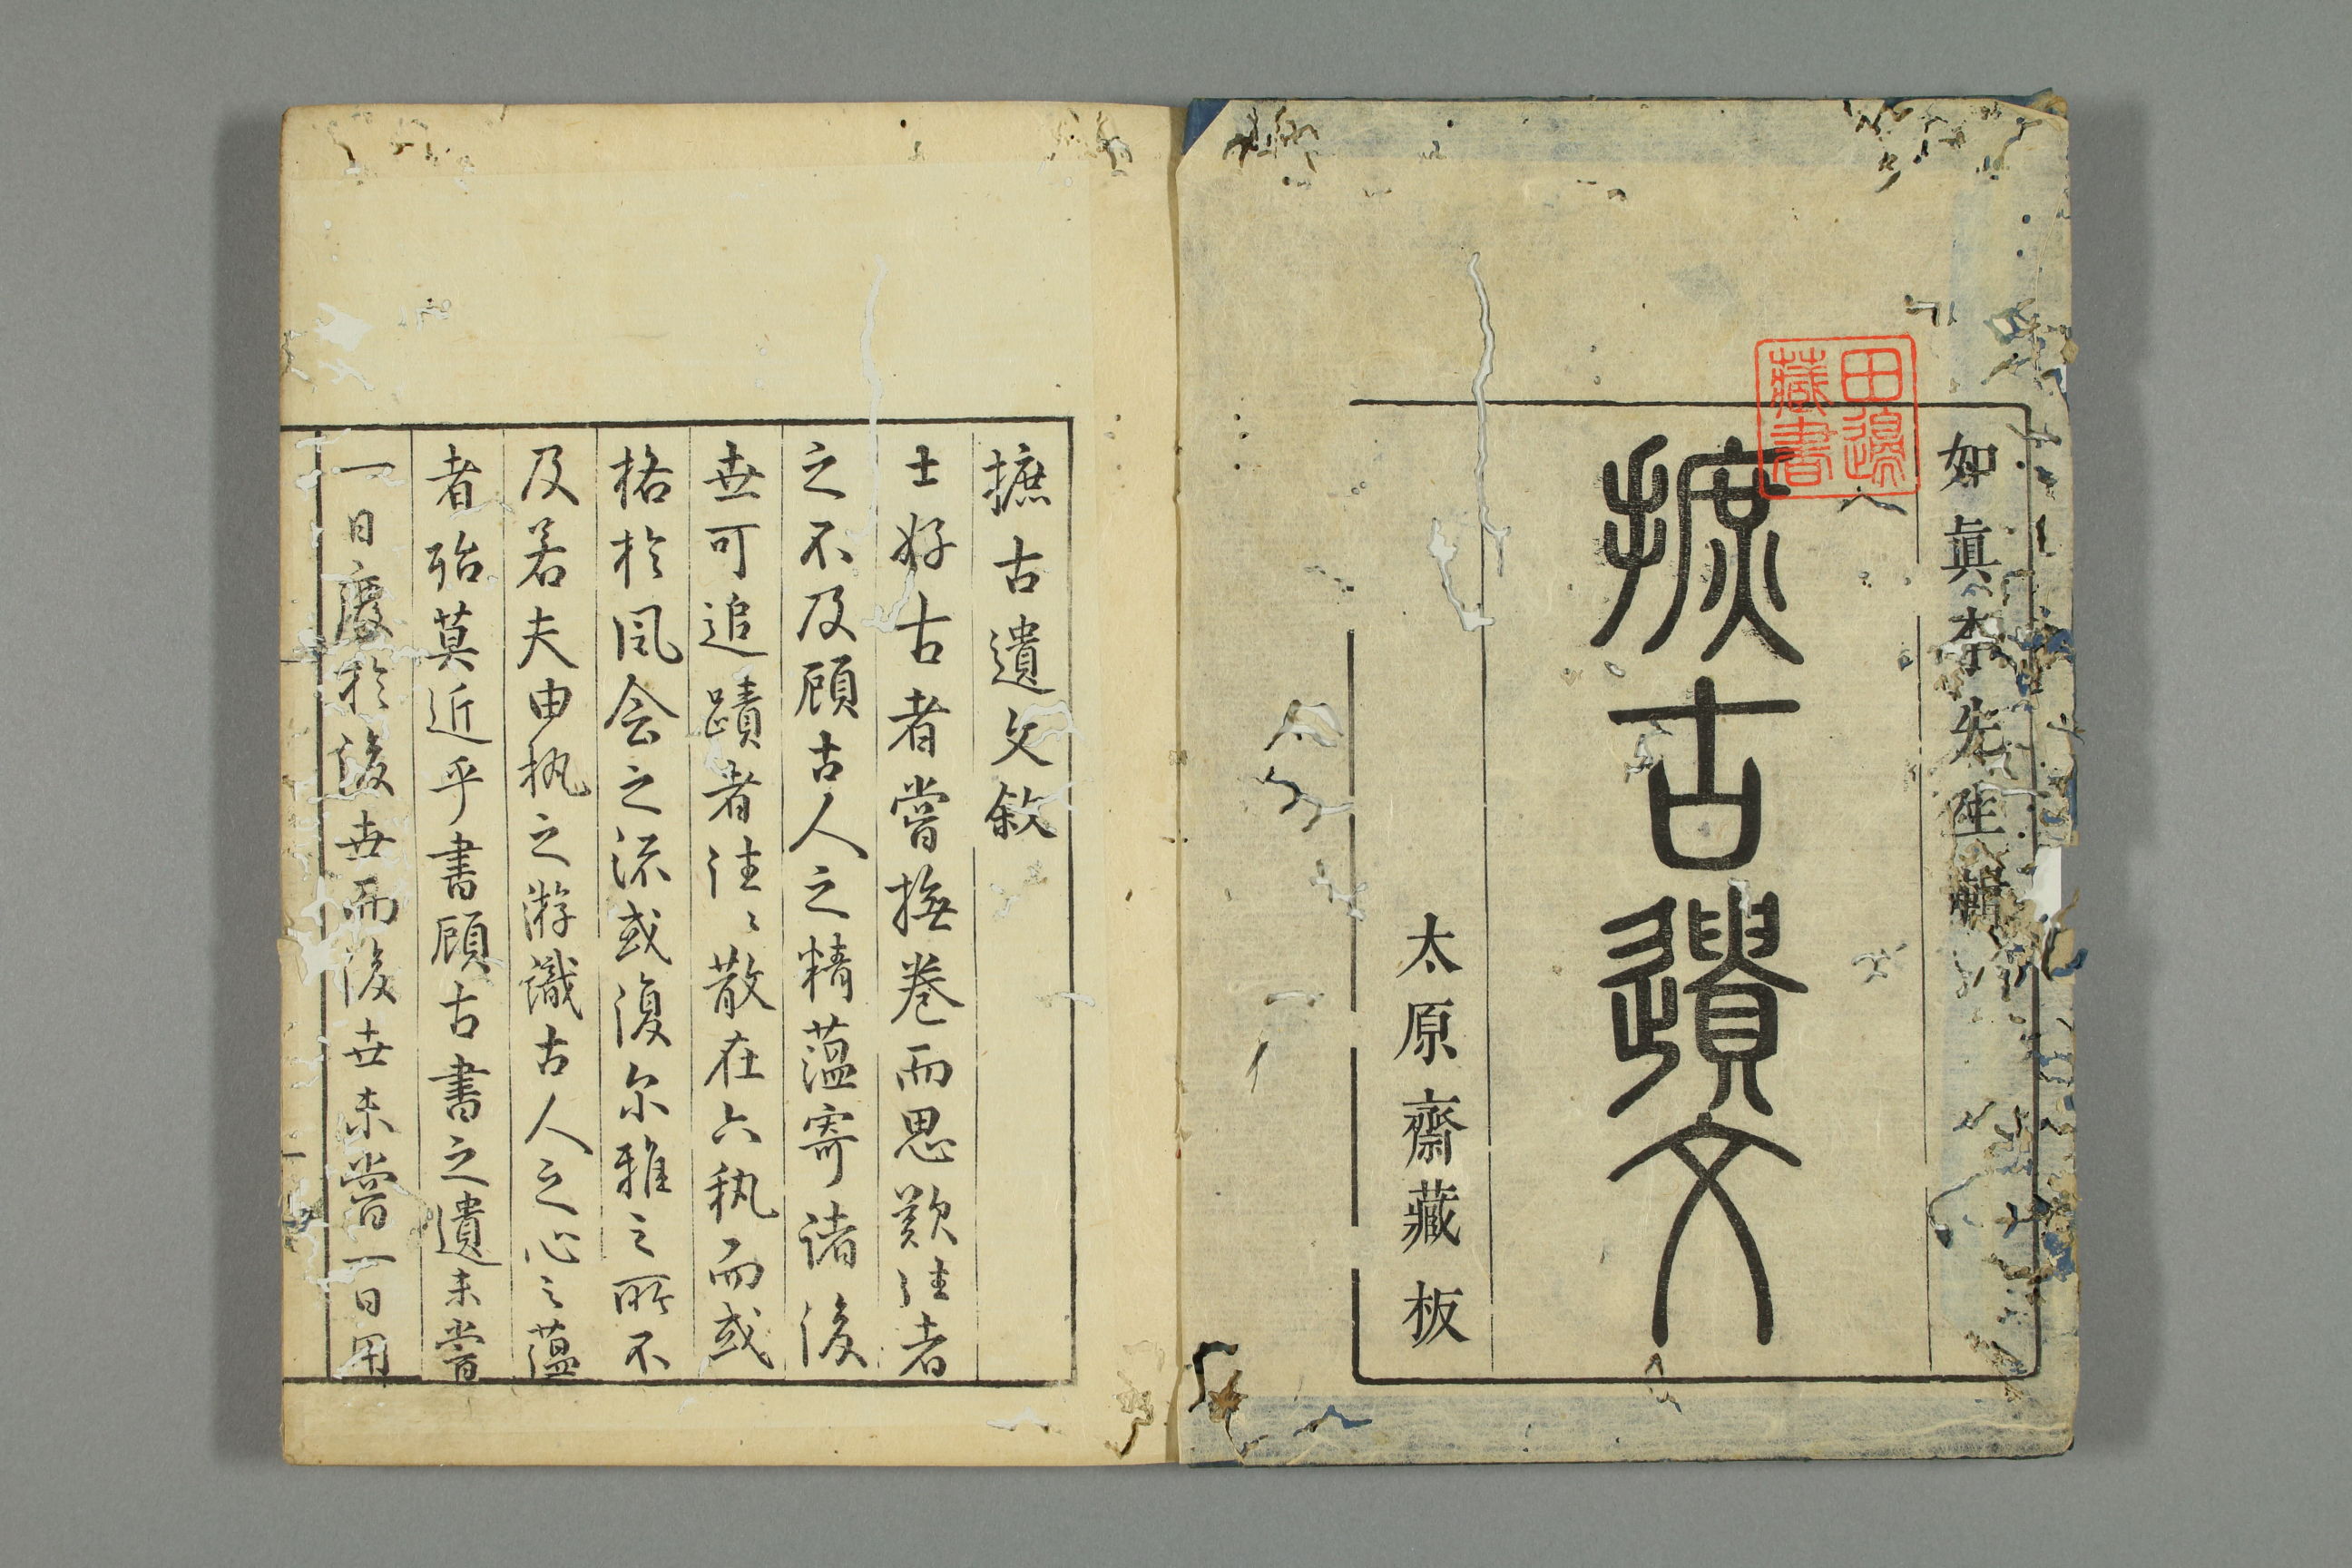 如眞李先生輯
摭古遺文
太原齋藏板
田邊
藏書
摭古遺文敘
士好古者嘗撫卷而思歎往者
之不及顧古人之精薀寄諸後
世可追蹟者往〻散在六執而或
格於風会之流或復尔雅之所不
及若夫由執之游識古人之心之薀
者殆莫近乎書顧古書之遺未嘗
一日廢於後世而後世未嘗一日用